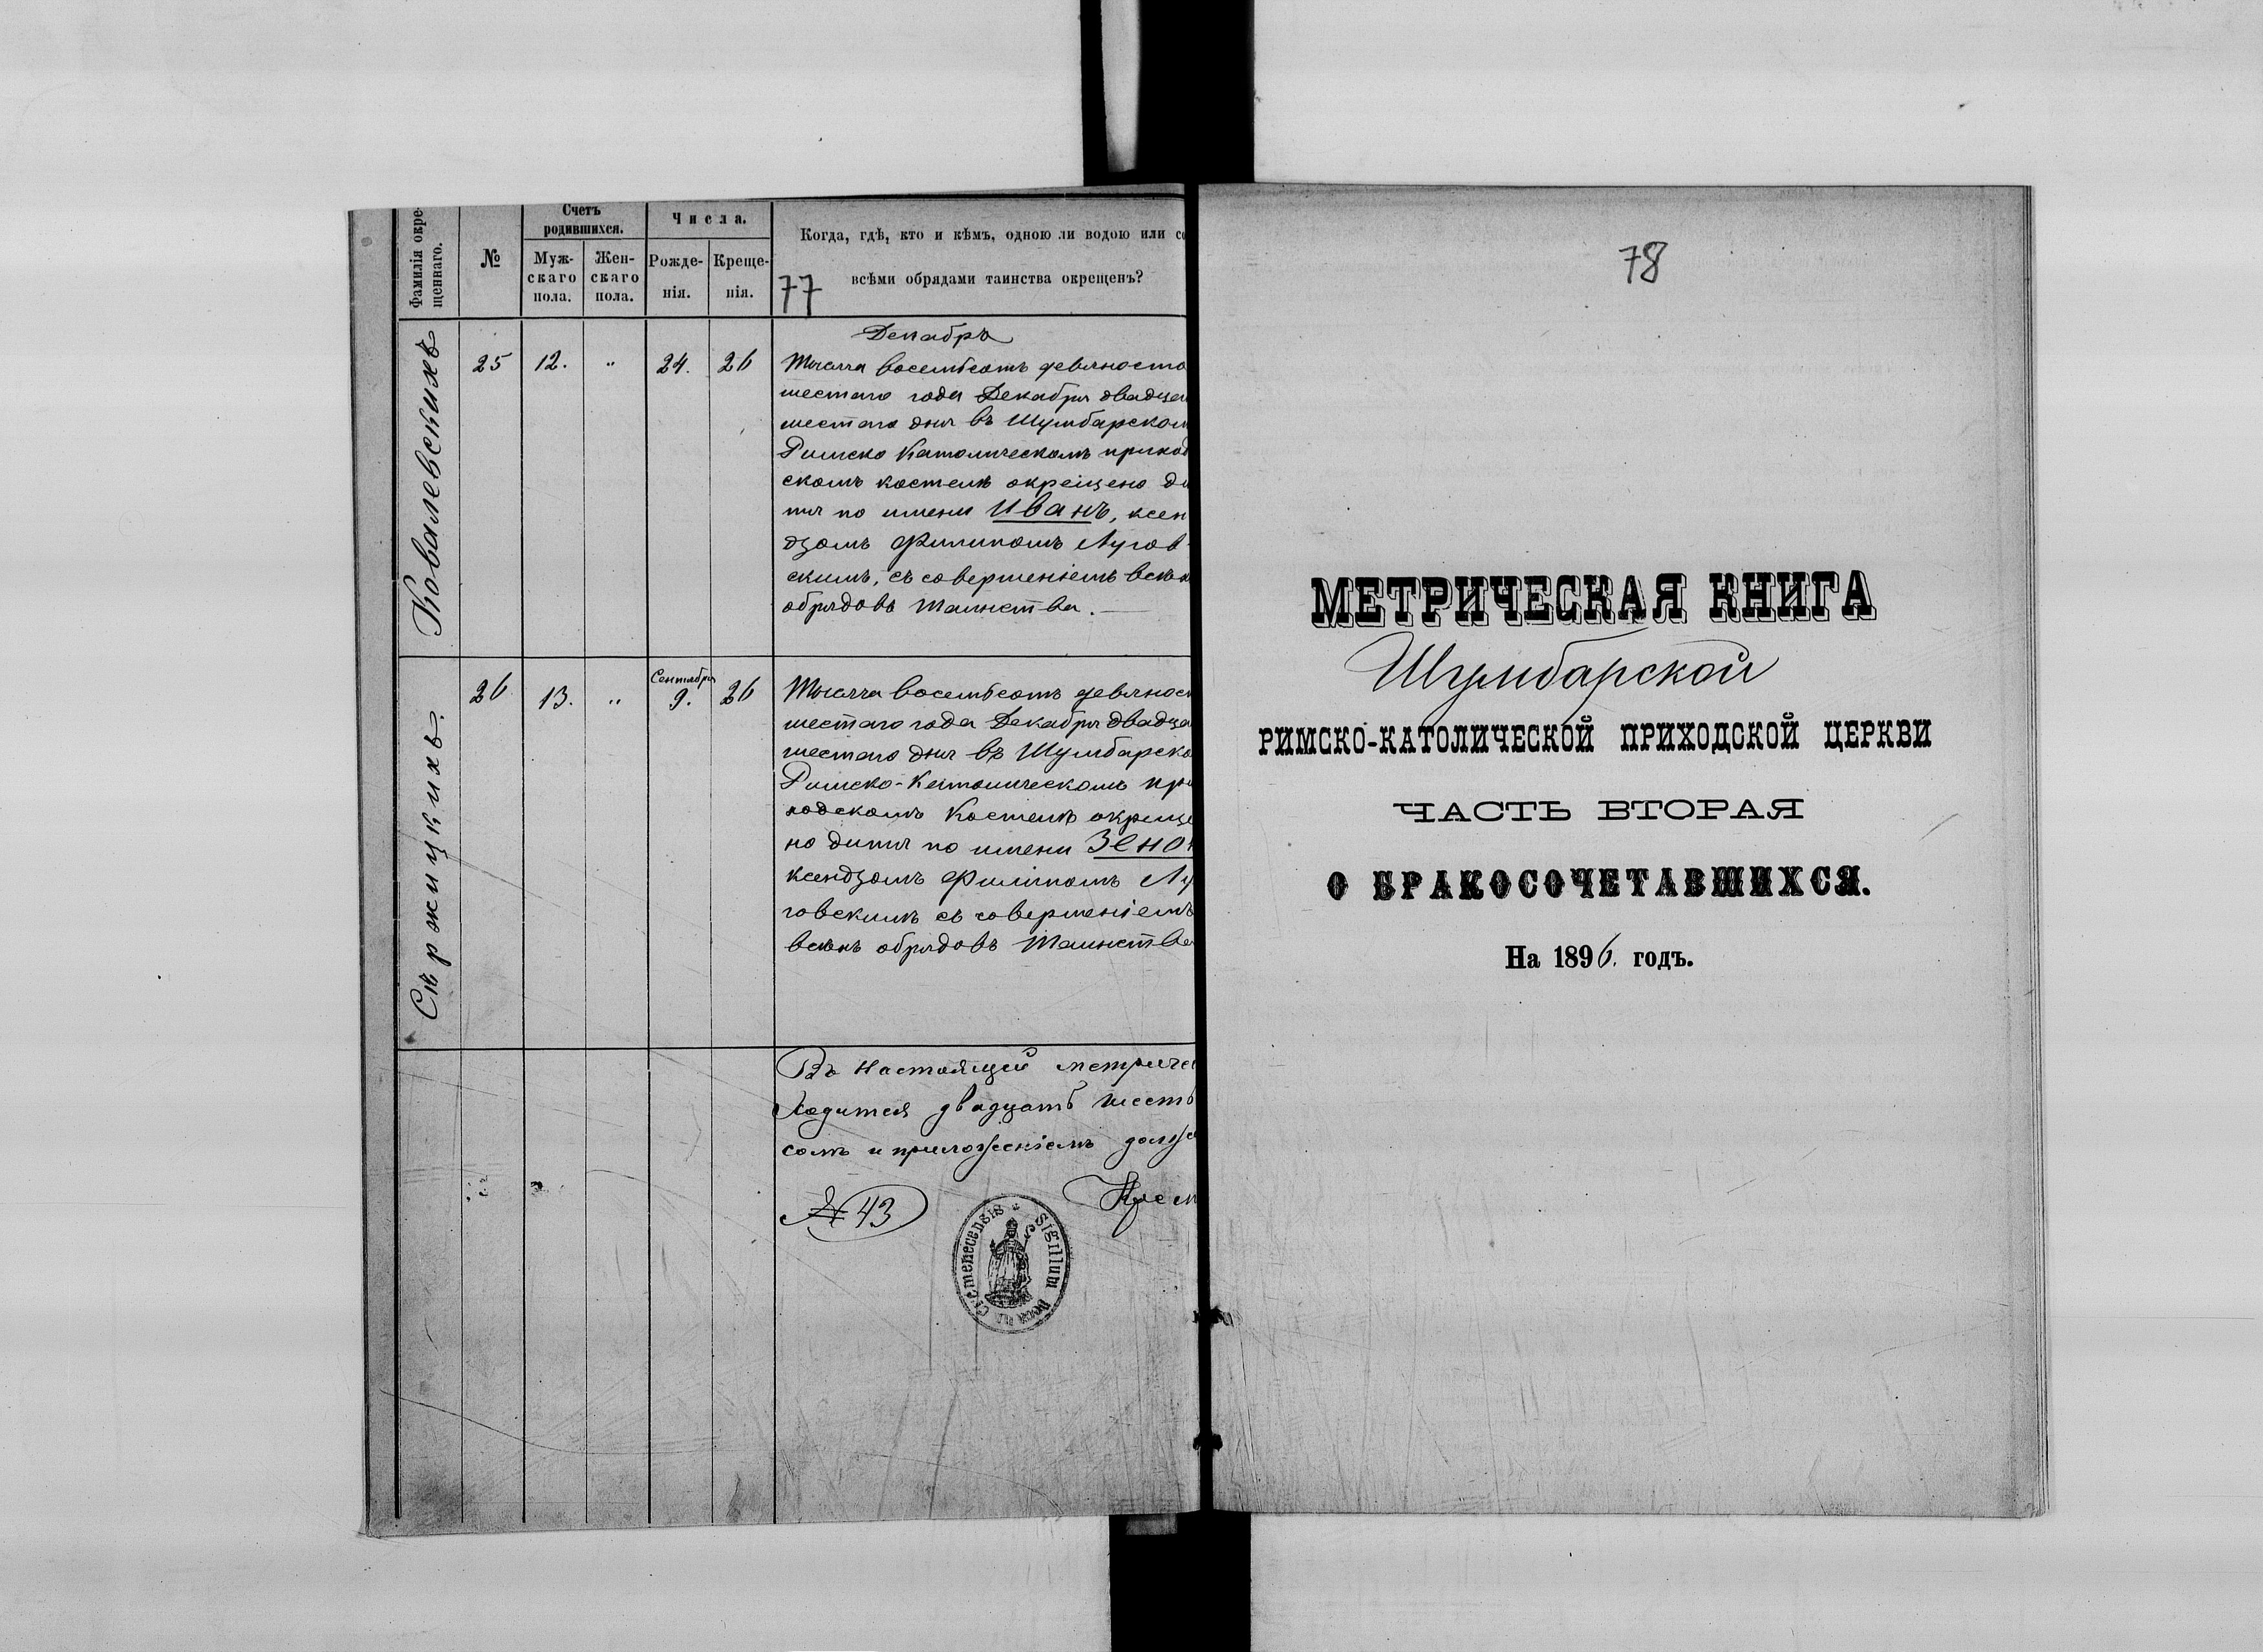 Фамилія окре-
щеннаго.
№
Счетъ
родившихся.
Муж-
скаго
пола.
Жен-
скаго
пола.
Числа.
Рожде-
нія.
Креще-
нія.
Когда, гдѣ, кто и кѣмъ, одною ли водою или со
всѣми обрядами таинства окрещенъ?
77
Ковалевскихъ
25 12. „ 24. 26
Декабрь
Тысяча восемьсотъ девяносто
шестаго года Декабря двадца
шестаго дня въ Шумбарском
Римско Католическомъ приход
скомъ костелѣ окрещено ди
тя по имени Иванъ, ксен
дзомъ Филипомъ Лугов-
скимъ, съ совершеніемъ всѣх
обрядовъ Таинства.
Сѣржицкихъ.
26 13. „ Сентября 9. 26
Тысяча восемьсотъ девянос
шестаго года Декабря двадца
шестаго дня въ Шумбарско
Римско-Католическомъ при
ходскомъ Костелѣ окреще
но дитя по имени Зено
ксендзомъ Филипомъ Лу
говскимъ съ совершеніемъ
всѣхъ обрядовъ Таинства
Въ настоящей метриче
ходится двадцать шесть
сомъ и приложеніемъ долж
№ 43 Крем
Sigillum Decanus Cremenecensis
78
МЕТРИЧЕСКАЯ КНИГА
Шумбарской
РИМСКО-КАТОЛИЧЕСКОЙ ПРИХОДСКОЙ ЦЕРКВИ
ЧАСТЬ ВТОРАЯ
О БРАКОСОЧЕТАВШИХСЯ.
На 1896. годъ.